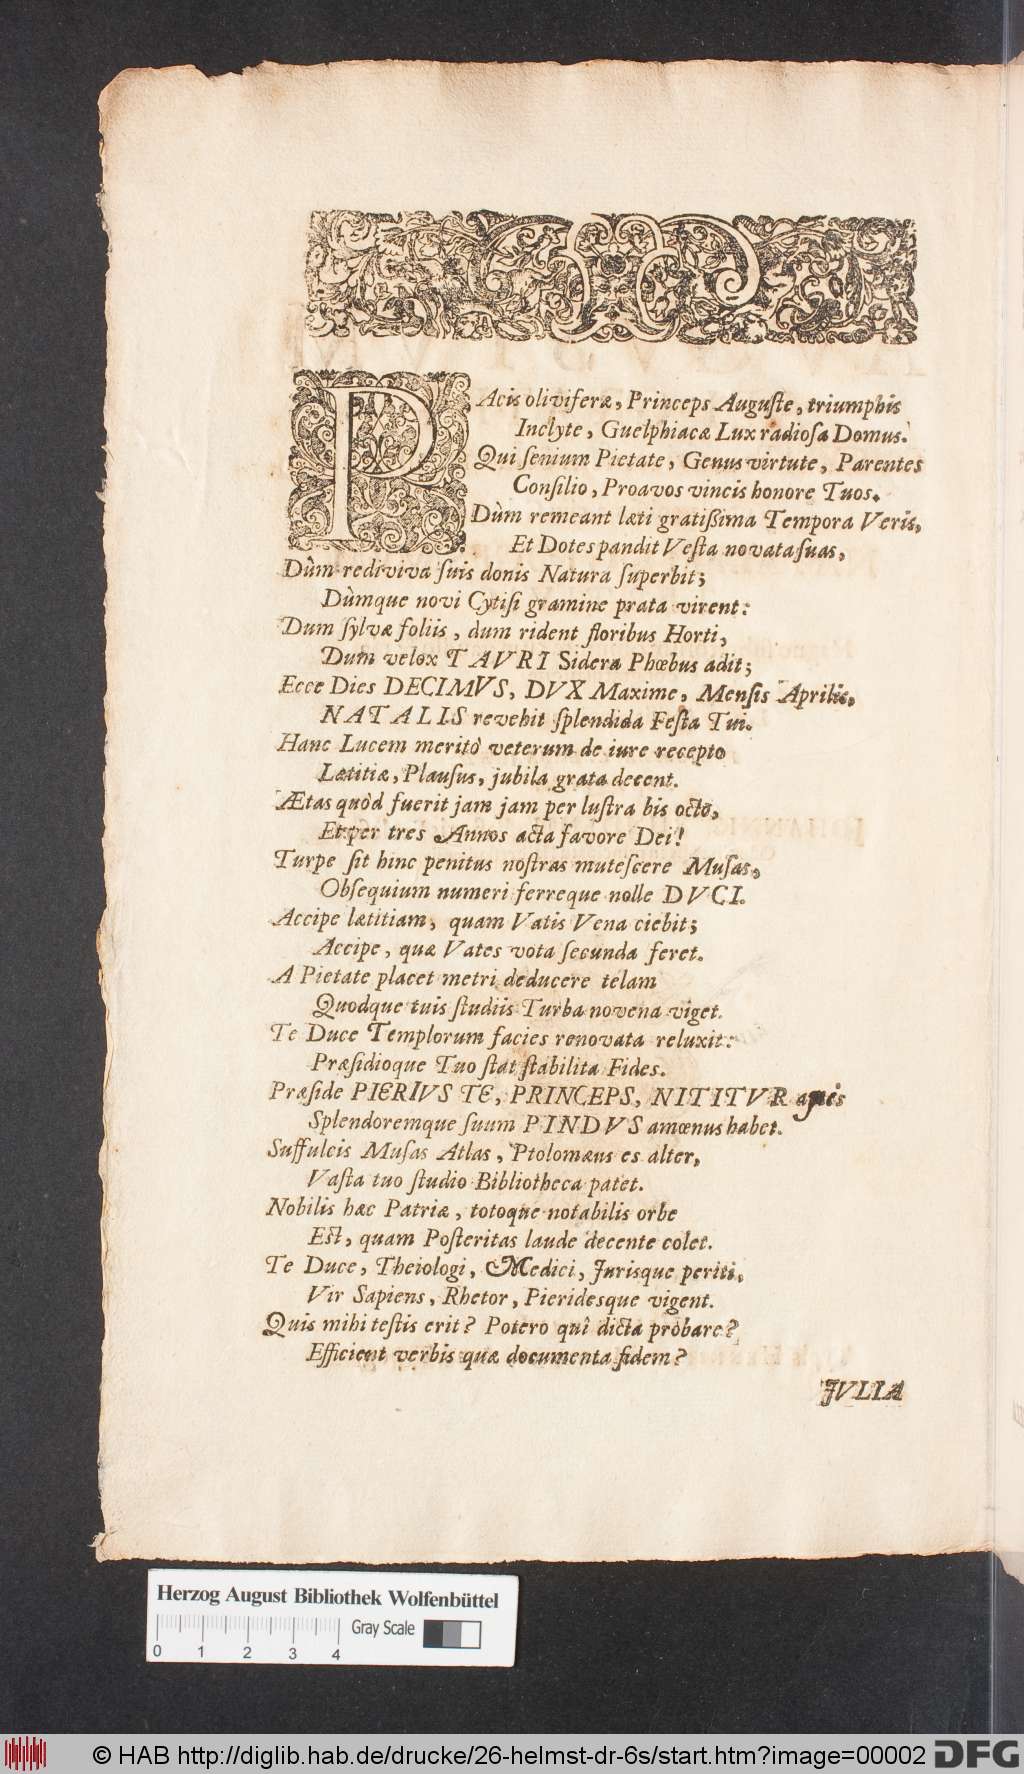 PAcis oliviferæ, Princeps Auguſte, triumphis
Inclyte, Guelphiacæ Lux radioſa Domus.
Qui ſenium Pietate, Genus virtute, Parentes
Conſilio, Proavos vincis honore Tuos.
Dùm remeant læti gratiſsima Tempora Veris,
Et Dotes pandit Veſta novata ſuas,
Dùm rediviva ſuis donis Natura ſuperbit;
Dùmque novi Cytiſi gramine prata virent:
Dum ſylvæ foliis, dum rident floribus Horti,
Dum velox TAVRI Sidera Phœbus adit;
Ecce Dies DECIMVS, DVX Maxime, Menſis Aprilis,
NATALIS revehit ſplendida Feſta Tui.
Hanc Lucem meritò veterum de iure recepto
Lætitiæ, Plauſus, jubila grata decent.
Ætas quòd fuerit jam jam per luſtra bis octo,
Et per tres Annos acta favore Dei!
Turpe ſit hinc penitus noſtras muteſcere Muſas,
Obſequium numeri ferreque nolle DVCI.
Accipe lætitiam, quam Vatis Vena ciebit;
Accipe, quæ Vates vota ſecunda feret.
A Pietate placet metri deducere telam
Quodque tuis ſtudiis Turba novena viget.
Te Duce Templorum facies renovata reluxit:
Præſidioque Tuo ſtat ſtabilita Fides.
Præſide PIERIVS TE, PRINCEPS, NITITVR apis
Splendoremque ſuum PINDVS amœnus habet.
Suffulcis Muſas Atlas, Ptolomæus es alter,
Vaſta tuo ſtudio Bibliotheca patet.
Nobilis hæc Patriæ, totoque notabilis orbe
Eſt, quam Poſteritas laude decente colet.
Te Duce, Theiologi, Medici, Jurisque periti,
Vir Sapiens, Rhetor, Pieridesque vigent.
Quis mihi teſtis erit? Potero quî dicta probare?
Efficient verbis quæ documenta fidem?
JVLIA
Herzog August Bibliothek Wolfenbüttel
Gray Scale
0 1 2 3 4
© HAB http://diglib.hab.de/drucke/26-helmst-dr-6s/start.htm?image=00002 DFG